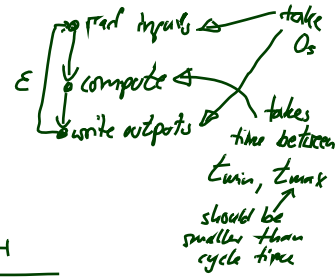 ε
read inputs
compute
write outputs
take
0s
takes
time between
tmin, tmax
should be
smaller than
cycle time